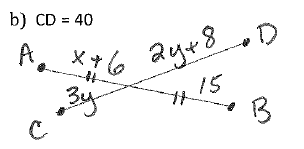 b) CD = 40
A x + 6 2y + 8 D
3y 15 B
C